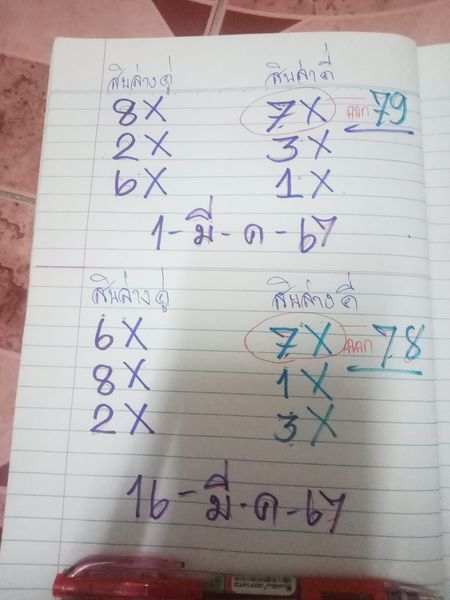 สิบล่างคู่ สิบล่างคี่
8X 7X ออก 79
2X 3X
6X 1X
1-มี-ค-67
สิบล่างคู่ สิบล่างคี่
6X 7X ออก 78
8X 1X
2X 3X
16-มี-ค-67